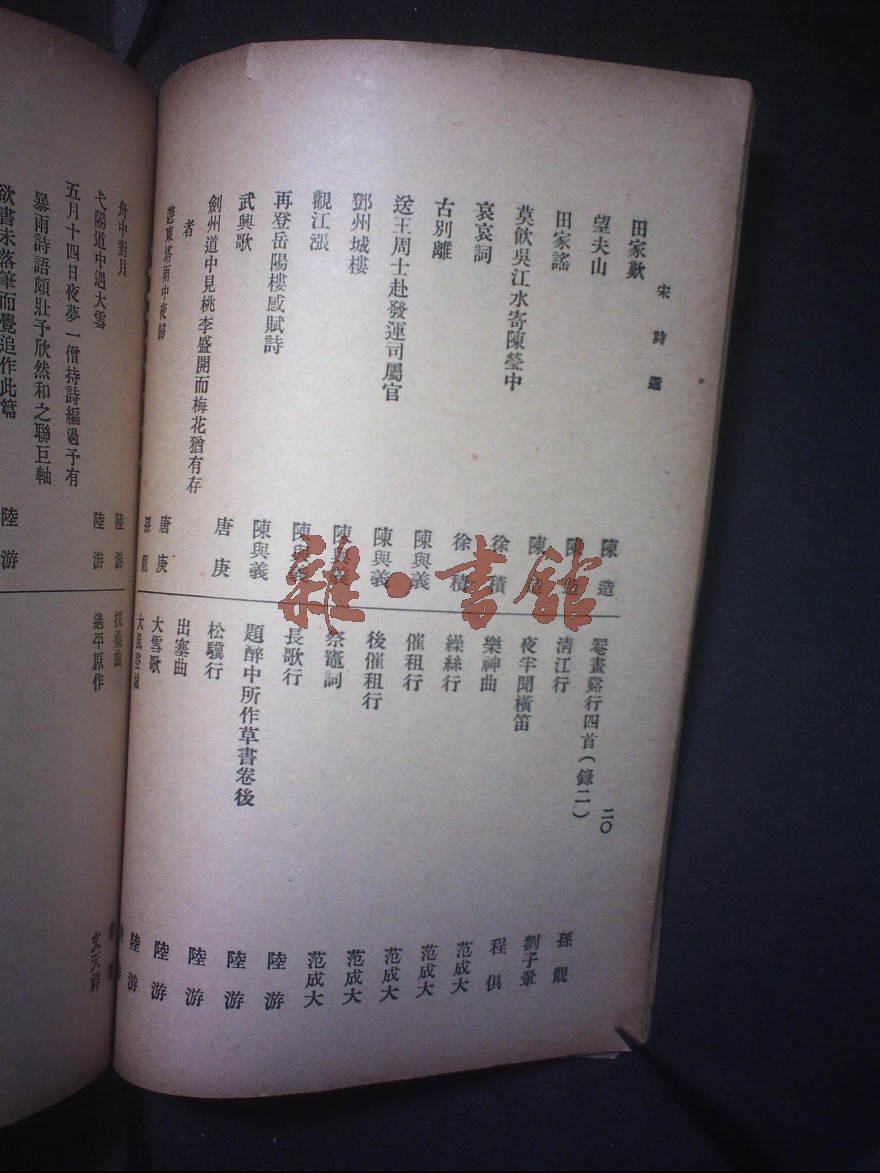 宋詩選
田家歎　陳造
望夫山　陳造
田家謠　陳造
莫飲吳江水寄陳瑩中　徐積
哀哀詞　徐積
古別離　陳與義
送王周士赴發運司屬官　陳與義
鄧州城樓　陳與義
觀江漲　陳與義
再登岳陽樓感賦詩　陳與義
武興歌　唐庚
劍州道中見桃李盛開而梅花猶有存
者　唐庚
遊東塔雨中夜歸　孫覿
罨畫谿行四首（錄二）　孫覿
二〇
清江行　劉子翬
夜半聞橫笛　程俱
樂神曲　范成大
繰絲行　范成大
催租行　范成大
後催租行　范成大
祭竈詞　范成大
長歌行　陸游
題醉中所作草書卷後　陸游
松驥行　陸游
出塞曲　陸游
大雪歌　陸游
大風登城
舟中對月　陸游
弋陽道中遇大雪　陸游
五月十四日夜夢一僧持詩編過予有
暴雨詩語頗壯予欣然和之聯巨軸
欲書未落筆而覺追作此篇　陸游
採桑曲
過平原作　文天祥
雜·書館